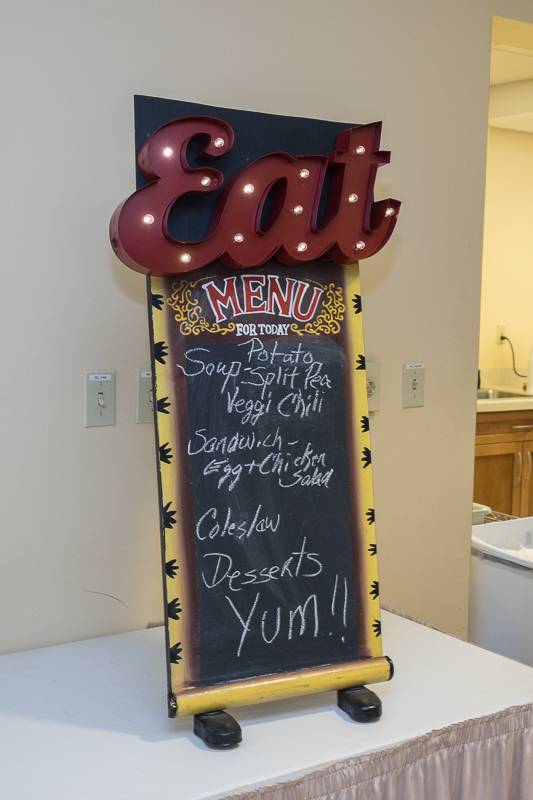 Eat
MENU
FOR TODAY
Potato
Soup - Split Pea
Veggi Chili
Sandwich -
Egg + Chicken
Salad
Coleslaw
Desserts
YUM!!